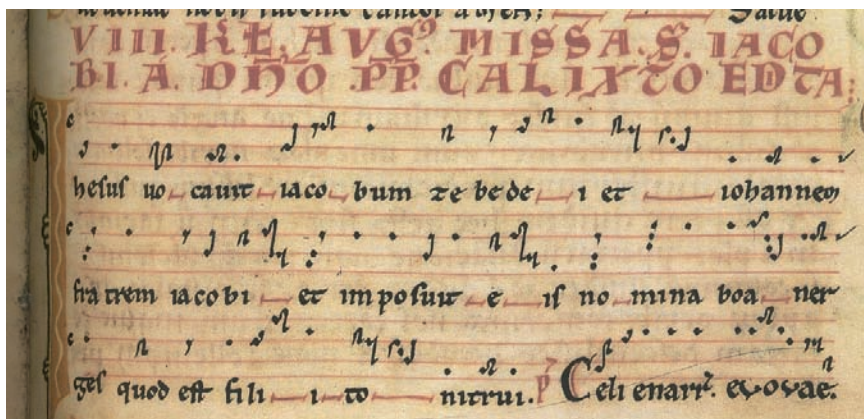 VIII. KL. AVG⁹ MISSA. S. IACO
BI. A. DNO .PP. CALIXTO EDITA:
Ihesus uo cauit iaco bum zebede i et iohannem
fratrem iacobi et imposuit e is no mina boa ner
ges quod est fili i to nitrui. p̄ Celi enarr̄. evovae.